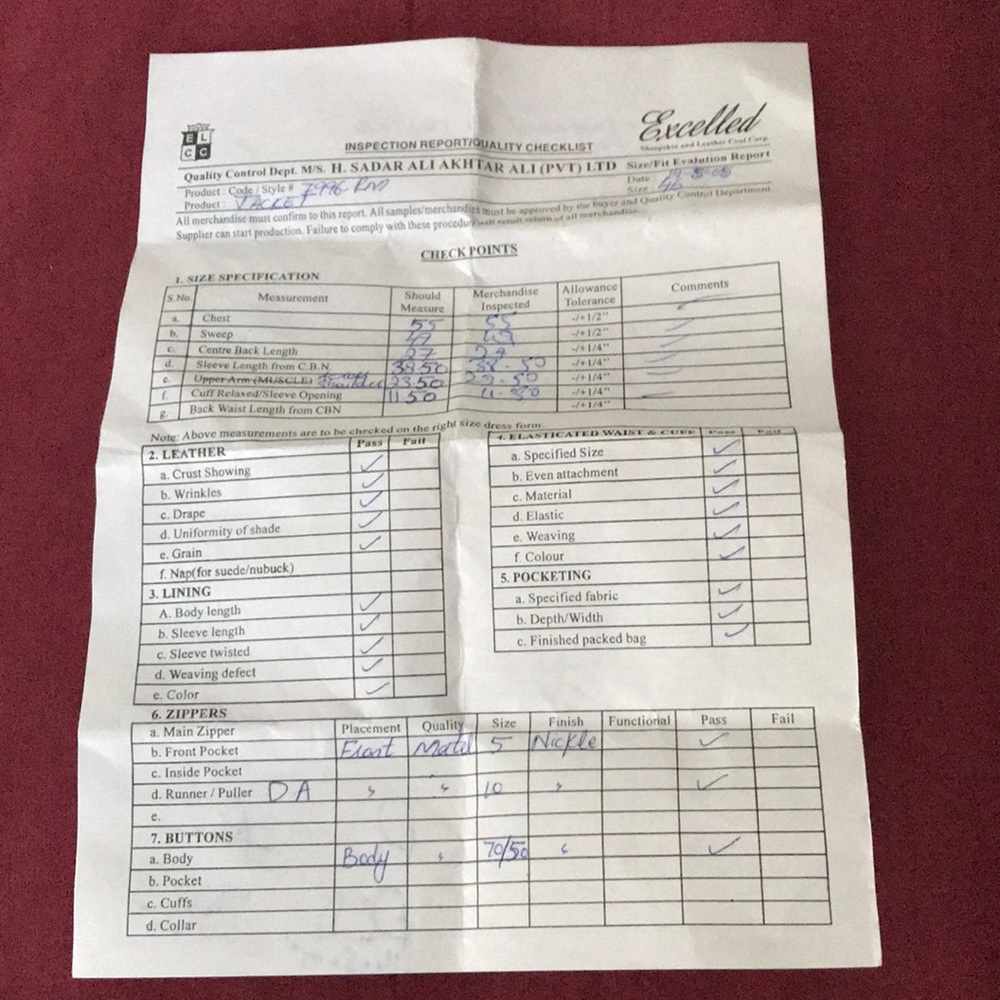 E L
C C
Excelled
Sheepskin and Leather Coat Corp.
INSPECTION REPORT/QUALITY CHECKLIST
Quality Control Dept. M/S. H. SADAR ALI AKHTAR ALI (PVT) LTD Size/Fit Evalution Report
Product : Code / Style # 7996-RM Date : 19-5-05
Product : JACKET Size : 46
All merchandise must confirm to this report. All samples/merchandizs must be approved by the buyer and Quality Control Department.
Supplier can start production. Failure to comply with these procedure will result return of all merchandise.
CHECK POINTS
1. SIZE SPECIFICATION
S.No. Measurement Should Measure Merchandise Inspected Allowance Tolerance Comments
a. Chest 55 55 -/+1/2"
b. Sweep 49 49 -/+1/2"
c. Centre Back Length 27 27 -/+1/4"
d. Sleeve Length from C.B.N. 38.50 38.50 -/+1/4"
e. Upper Arm (MUSCLE) Shoulder 23.50 23.50 -/+1/4"
f. Cuff Relaxed/Sleeve Opening 11.50 11.50 -/+1/4"
g. Back Waist Length from CBN -/+1/4"
Note: Above measurements are to be checked on the right size dress form.
2. LEATHER Pass Fail
a. Crust Showing ✓
b. Wrinkles ✓
c. Drape ✓
d. Uniformity of shade ✓
e. Grain ✓
f. Nap(for suede/nubuck)
3. LINING
A. Body length ✓
b. Sleeve length ✓
c. Sleeve twisted ✓
d. Weaving defect ✓
e. Color ✓
4. ELASTICATED WAIST & CUFF Pass Fail
a. Specified Size ✓
b. Even attachment ✓
c. Material ✓
d. Elastic ✓
e. Weaving ✓
f. Colour ✓
5. POCKETING
a. Specified fabric ✓
b. Depth/Width ✓
c. Finished packed bag ✓
6. ZIPPERS
a. Main Zipper Placement Quality Size Finish Functional Pass Fail
b. Front Pocket Front Matel 5 Nickle ✓
c. Inside Pocket
d. Runner / Puller DA " " 10 " ✓
e.
7. BUTTONS
a. Body Body " 70/50 " ✓
b. Pocket
c. Cuffs
d. Collar